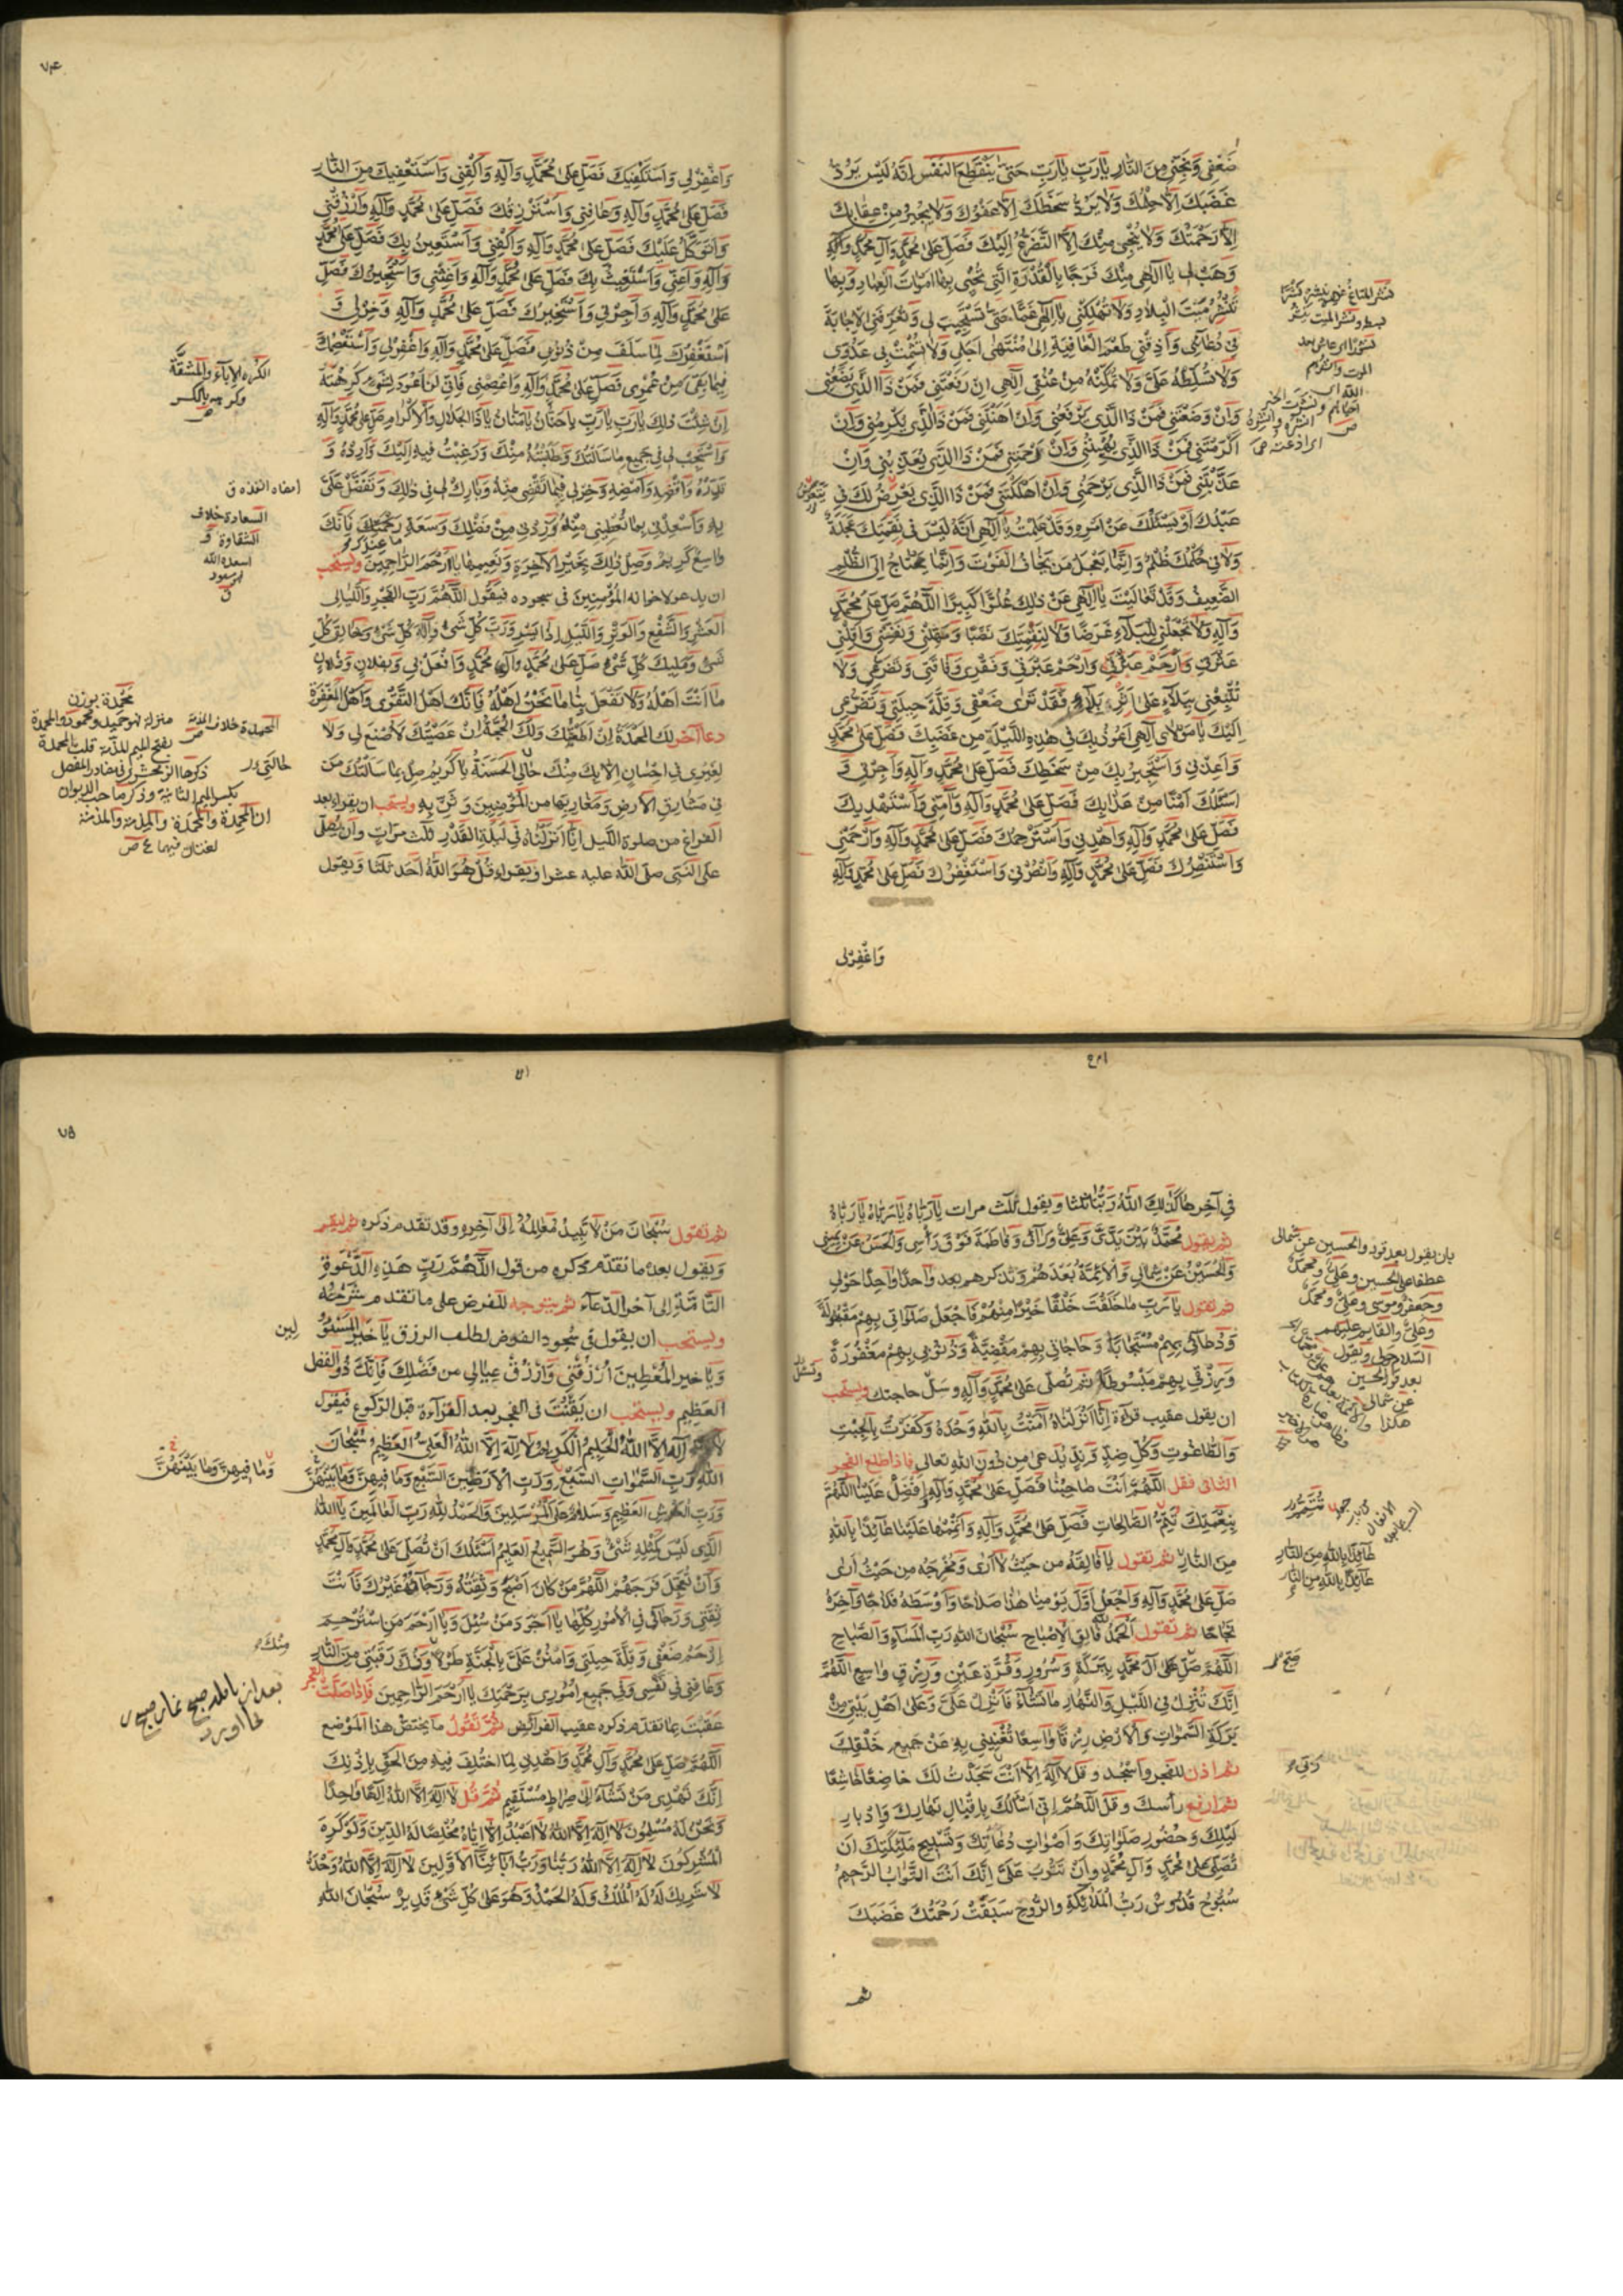 ضَعْفِى وَنَجِّنِى مِنَ النَّارِ يَا رَبِّ يَا رَبِّ حَتّىٰ يَنْقَطِعَ النَّفَسُ اِنَّهُ لَيْسَ يَرُدُّ
غَضَبَكَ اِلَّا حِلْمُكَ وَلَا يَرُدُّ سَخَطَكَ اِلَّا عَفْوُكَ وَلَا يُجِيرُ مِنْ عِقَابِكَ
اِلَّا رَحْمَتُكَ وَلَا يُنْجِى مِنْكَ اِلَّا التَّضَرُّعُ اِلَيْكَ فَصَلِّ عَلىٰ مُحَمَّدٍ وَآلِ مُحَمَّدٍ وَآلِهِ
وَهَبْ لِى يَا اِلٰهِى مِنْكَ فَرَجًا بِالْقُدْرَةِ الَّتِى تُحْيِى بِهَا اَمْوَاتَ الْعِبَادِ وَبِهَا
تَنْشُرُ مَيْتَ الْبِلَادِ وَلَا تُهْلِكْنِى يَا اِلٰهِى غَمًّا حَتّىٰ تَسْتَجِيبَ لِى وَتُعَرِّفَنِى الْاِجَابَةَ
فِى دُعَائِى وَاَذِقْنِى طَعْمَ الْعَافِيَةِ اِلىٰ مُنْتَهىٰ اَجَلِى وَلَا تُشْمِتْ بِى عَدُوِّى
وَلَا تُسَلِّطْهُ عَلَىَّ وَلَا تُمَكِّنْهُ مِنْ عُنُقِى اِلٰهِى اِنْ رَفَعْتَنِى فَمَنْ ذَا الَّذِى يَضَعُنِى
وَاِنْ وَضَعْتَنِى فَمَنْ ذَا الَّذِى يَرْفَعُنِى وَاِنْ اَهَنْتَنِى فَمَنْ ذَا الَّذِى يُكْرِمُنِى وَاِنْ
اَكْرَمْتَنِى فَمَنْ ذَا الَّذِى يُهِينُنِى وَاِنْ رَحِمْتَنِى فَمَنْ ذَا الَّذِى يُعَذِّبُنِى وَاِنْ
عَذَّبْتَنِى فَمَنْ ذَا الَّذِى يَرْحَمُنِى وَاِنْ اَهْلَكْتَنِى فَمَنْ ذَا الَّذِى يَعْرِضُ لَكَ فِى
عَبْدِكَ اَوْ يَسْئَلُكَ عَنْ اَمْرِهِ وَقَدْ عَلِمْتُ يَا اِلٰهِى اَنَّهُ لَيْسَ فِى نَقِمَتِكَ عَجَلَةٌ
وَلَا فِى حُكْمِكَ ظُلْمٌ وَاِنَّمَا يَعْجَلُ مَنْ يَخَافُ الْفَوْتَ وَاِنَّمَا يَحْتَاجُ اِلَى الظُّلْمِ
الضَّعِيفُ وَقَدْ تَعَالَيْتَ يَا اِلٰهِى عَنْ ذٰلِكَ عُلُوًّا كَبِيرًا اَللّٰهُمَّ صَلِّ عَلىٰ مُحَمَّدٍ
وَآلِهِ وَلَا تَجْعَلْنِى لِلْبَلَاءِ غَرَضًا وَلَا لِنَقِمَتِكَ نَصَبًا وَمَهِّلْنِى وَنَفِّسْنِى وَاَقِلْنِى
عَثْرَتِى وَارْحَمْ عَبْرَتِى وَفَقْرِى وَفَاقَتِى وَتَضَرُّعِى وَلَا
تُتْبِعْنِى بِبَلَاءٍ عَلىٰ اَثَرِ بَلَاءٍ فَقَدْ تَرىٰ ضَعْفِى وَقِلَّةَ حِيلَتِى وَتَضَرُّعِى
اِلَيْكَ يَا مَوْلَاىَ اِلٰهِى اَعُوذُ بِكَ فِى هٰذِهِ اللَّيْلَةِ مِنْ غَضَبِكَ فَصَلِّ عَلىٰ مُحَمَّدٍ
وَاَعِذْنِى وَاَسْتَجِيرُ بِكَ مِنْ سَخَطِكَ فَصَلِّ عَلىٰ مُحَمَّدٍ وَآلِهِ وَاَجِرْنِى وَ
اَسْئَلُكَ اَمْنًا مِنْ عَذَابِكَ فَصَلِّ عَلىٰ مُحَمَّدٍ وَآلِهِ وَآمِنِّى وَاَسْتَهْدِيكَ
فَصَلِّ عَلىٰ مُحَمَّدٍ وَآلِهِ وَاهْدِنِى وَاَسْتَرْحِمُكَ فَصَلِّ عَلىٰ مُحَمَّدٍ وَآلِهِ وَارْحَمْنِى
وَاَسْتَنْصِرُكَ فَصَلِّ عَلىٰ مُحَمَّدٍ وَآلِهِ وَانْصُرْنِى وَاَسْتَغْفِرُكَ فَصَلِّ عَلىٰ مُحَمَّدٍ وَآلِهِ
وَاغْفِرْلِى
٧٤
وَاغْفِرْلِى وَاَسْتَكْفِيكَ فَصَلِّ عَلىٰ مُحَمَّدٍ وَآلِهِ وَاكْفِنِى وَاَسْتَعْفِيكَ مِنَ النَّارِ
فَصَلِّ عَلىٰ مُحَمَّدٍ وَآلِهِ وَعَافِنِى وَاَسْتَرْزِقُكَ فَصَلِّ عَلىٰ مُحَمَّدٍ وَآلِهِ وَارْزُقْنِى
وَاَتَوَكَّلُ عَلَيْكَ فَصَلِّ عَلىٰ مُحَمَّدٍ وَآلِهِ وَاكْفِنِى وَاَسْتَعِينُ بِكَ فَصَلِّ عَلىٰ مُحَمَّدٍ
وَآلِهِ وَاَعِنِّى وَاَسْتَغِيثُ بِكَ فَصَلِّ عَلىٰ مُحَمَّدٍ وَآلِهِ وَاَغِثْنِى وَاَسْتَجِيرُكَ فَصَلِّ
عَلىٰ مُحَمَّدٍ وَآلِهِ وَاَجِرْنِى وَاَسْتَخِيرُكَ فَصَلِّ عَلىٰ مُحَمَّدٍ وَآلِهِ وَخِرْلِى وَ
اَسْتَغْفِرُكَ لِمَا سَلَفَ مِنْ ذُنُوبِى فَصَلِّ عَلىٰ مُحَمَّدٍ وَآلِهِ وَاغْفِرْلِى وَاَسْتَعْصِمُكَ
فِيمَا بَقِىَ مِنْ عُمْرِى فَصَلِّ عَلىٰ مُحَمَّدٍ وَآلِهِ وَاعْصِمْنِى فَاِنِّى لَنْ اَعُودَ لِشَىْءٍ كَرِهْتَهُ
اِنْ شِئْتَ ذٰلِكَ يَا رَبِّ يَا رَبِّ يَا حَنَّانُ يَا مَنَّانُ يَا ذَا الْجَلَالِ وَالْاِكْرَامِ صَلِّ عَلىٰ مُحَمَّدٍ وَآلِهِ
وَاسْتَجِبْ لِى فِى جَمِيعِ مَا سَأَلْتُكَ وَطَلَبْتُهُ مِنْكَ وَرَغِبْتُ فِيهِ اِلَيْكَ وَاَرِدْهُ وَ
قَدِّرْهُ وَاقْضِهِ وَاَمْضِهِ وَخِرْلِى فِيمَا تَقْضِى مِنْهُ وَبَارِكْ لِى فِى ذٰلِكَ وَتَفَضَّلْ عَلَىَّ
بِهِ وَاَسْعِدْنِى بِمَا تُعْطِينِى مِنْهُ وَزِدْنِى مِنْ فَضْلِكَ وَسَعَةِ رَحْمَتِكَ فَاِنَّكَ
وَاسِعٌ كَرِيمٌ وَصِلْ ذٰلِكَ بِخَيْرِ الْآخِرَةِ وَنَعِيمِهَا يَا اَرْحَمَ الرَّاحِمِينَ ويستحب
ان يدعو لاخوانه المُؤْمِنِينَ فى سجوده فيَقُول اَللّٰهُمَّ رَبَّ الْفَجْرِ وَاللَّيَالِى
الْعَشْرِ وَالشَّفْعِ وَالْوَتْرِ وَاللَّيْلِ اِذَا يَسْرِ وَرَبَّ كُلِّ شَىْءٍ وَاِلٰهَ كُلِّ شَىْءٍ وَخَالِقَ كُلِّ
شَىْءٍ وَمَلِيكَ كُلِّ شَىْءٍ صَلِّ عَلىٰ مُحَمَّدٍ وَآلِ مُحَمَّدٍ وَافْعَلْ بِى وَبِفُلَانٍ وَفُلَانٍ
مَا اَنْتَ اَهْلُهُ وَلَا تَفْعَلْ بِنَا مَا نَحْنُ اَهْلُهُ فَاِنَّكَ اَهْلُ التَّقْوىٰ وَاَهْلُ الْمَغْفِرَةِ
دعا آخر لَكَ الْمَحْمَدَةُ اِنْ اَطَعْتُكَ وَلَكَ الْحُجَّةُ اِنْ عَصَيْتُكَ لَا صُنْعَ لِى وَلَا
لِغَيْرِى فِى اِحْسَانٍ اِلَّا بِكَ مِنْكَ حَالِى الْحَسَنَةُ يَا كَرِيمُ صِلْ بِمَا سَأَلْتُكَ مَنْ
فِى مَشَارِقِ الْاَرْضِ وَمَغَارِبِهَا مِنَ الْمُؤْمِنِينَ وَثَنِّ بِى ويستحب ان يقراء بعد
الفراغ من صلوة اللَّيل اِنَّا اَنْزَلْنَاهُ فِى لَيْلَةِ الْقَدْرِ ثلث مرات وان يُصلّى
على النَّبِىِّ صلّى اللّٰه عليه عشرا ويقراء قُلْ هُوَ اللّٰهُ اَحَد ثلثا ويقول
الكره الاباء والمشقّة
وكرهه بالكسر
السعادة خلاف
الشقاوة
اسعده اللّه
محمدة بوزن
ذكرها الزمخشرى فى مصادر المفصل
بكسر الميم الثانية وذكر صاحب الديوان
ان المحمدة والمحمدة والمذمة والمذمة
لغتان فيهما
فِى آخِرِهَا كَذٰلِكَ اللّٰهُ رَبُّنَا ثلثا ويقول ثلث مرات يَا رَبَّاهُ يَا رَبَّاهُ يَا رَبَّاهُ
ثم يقول مُحَمَّدٌ بَيْنَ يَدَىَّ وَعَلِىٌّ وَرَائِى وَفَاطِمَةُ فَوْقَ رَأْسِى وَالْحَسَنُ عَنْ يَمِينِى
وَالْحُسَيْنُ عَنْ شِمَالِى وَالْاَئِمَّةُ بَعْدَهُمْ وتذكرهم بعد وَاحِدًا وَاحِدًا حَوْلِى
ثم تقول يَا رَبِّ مَا خَلَقْتَ خَلْقًا خَيْرًا مِنْهُمْ فَاجْعَلْ صَلَوَاتِى بِهِمْ مَقْبُولَةً
وَدُعَائِى بِهِمْ مُسْتَجَابًا وَحَاجَاتِى بِهِمْ مَقْضِيَّةً وَذُنُوبِى بِهِمْ مَغْفُورَةً
وَرِزْقِى بِهِمْ مَبْسُوطًا ثم تُصلّى على مُحَمَّدٍ وَآلِهِ وسَلْ حاجتك ويستحب
ان يقول عقيب قرائة اِنَّا اَنْزَلْنَاهُ آمَنْتُ بِاللّٰهِ وَحْدَهُ وَكَفَرْتُ بِالْجِبْتِ
وَالطَّاغُوتِ وَكُلِّ ضِدٍّ وَنِدٍّ يُدْعىٰ مِنْ دُونِ اللّٰهِ تعالى فاذا طلع الفجر
الثانى فقل اَللّٰهُمَّ اَنْتَ صَاحِبُنَا فَصَلِّ عَلىٰ مُحَمَّدٍ وَآلِهِ وَاَفْضِلْ عَلَيْنَا اَللّٰهُمَّ
بِنِعْمَتِكَ تَتِمُّ الصَّالِحَاتُ فَصَلِّ عَلىٰ مُحَمَّدٍ وَآلِهِ وَاَتْمِمْهَا عَلَيْنَا عَائِذًا بِاللّٰهِ
مِنَ النَّارِ ثم تقول يَا فَالِقَهُ مِنْ حَيْثُ لَا اَرىٰ وَمُخْرِجَهُ مِنْ حَيْثُ اَرىٰ
صَلِّ عَلىٰ مُحَمَّدٍ وَآلِهِ وَاجْعَلْ اَوَّلَ يَوْمِنَا هٰذَا صَلَاحًا وَاَوْسَطَهُ فَلَاحًا وَآخِرَهُ
نَجَاحًا ثم تقول اَلْحَمْدُ لِلّٰهِ فَالِقِ الْاِصْبَاحِ سُبْحَانَ اللّٰهِ رَبِّ الْمَسَاءِ وَالصَّبَاحِ
اَللّٰهُمَّ صَبِّحْ آلَ مُحَمَّدٍ بِبَرَكَةٍ وَسُرُورٍ وَقُرَّةِ عَيْنٍ وَرِزْقٍ وَاسِعٍ اَللّٰهُمَّ
اِنَّكَ تُنْزِلُ فِى اللَّيْلِ وَالنَّهَارِ مَا تَشَاءُ فَاَنْزِلْ عَلَىَّ وَعَلىٰ اَهْلِ بَيْتِى مِنْ
بَرَكَةِ السَّمٰوَاتِ وَالْاَرْضِ رِزْقًا وَاسِعًا تُغْنِينِى بِهِ عَنْ جَمِيعِ خَلْقِكَ
ثم اذن للفجر واسْجُد وقل لَا اِلٰهَ اِلَّا اَنْتَ سَجَدْتُ لَكَ خَاضِعًا خَاشِعًا
ثم ارفع رأسك وقل اَللّٰهُمَّ اِنِّى اَسْأَلُكَ بِاِقْبَالِ نَهَارِكَ وَاِدْبَارِ
لَيْلِكَ وَحُضُورِ صَلَوَاتِكَ وَاَصْوَاتِ دُعَاتِكَ وَتَسْبِيحِ مَلٰئِكَتِكَ اَنْ
تُصَلِّىَ عَلىٰ مُحَمَّدٍ وَآلِ مُحَمَّدٍ وَاَنْ تَتُوبَ عَلَىَّ اِنَّكَ اَنْتَ التَّوَّابُ الرَّحِيمُ
سُبُّوحٌ قُدُّوسٌ رَبُّ الْمَلَائِكَةِ وَالرُّوحِ سَبَقَتْ رَحْمَتُكَ غَضَبَكَ
بان يقول بعد قوله والحسين عن شمالى
عطفا على الحسين وعلىّ ومحمد
وجعفر وموسى وعلىّ ومحمد
وعلىّ والقايم عليهم
عَائِذًا بِاللّٰهِ مِنَ النَّارِ
عَائِذٌ بِاللّٰهِ مِنَ النَّارِ
٧٥
ثم تقول سُبْحَانَ مَنْ لَا تَبِيدُ مَعَالِمُهُ اِلى آخِرِهِ وقد تقدم ذكره ثم ليقم
ويقول بعدُ ما تقدم ذكره من قول اَللّٰهُمَّ رَبَّ هٰذِهِ الدَّعْوَةِ
التَّامَّةِ الى آخر الدّعاء ثم يتوجه للفرض على ما تقدم شرحه
ويستحب ان يقول فى سُجود الفرض لطلب الرزق يَا خَيْرَ الْمَسْئُولِينَ
وَيَا خَيْرَ الْمُعْطِينَ اُرْزُقْنِى وَارْزُقْ عِيَالِى مِنْ فَضْلِكَ فَاِنَّكَ ذُو الْفَضْلِ
الْعَظِيمِ ويستحب ان يَقْنُتَ فى الفجر بعد القراءة قبل الركوع فيقول
لَا اِلٰهَ اِلَّا اللّٰهُ الْحَلِيمُ الْكَرِيمُ لَا اِلٰهَ اِلَّا اللّٰهُ الْعَلِىُّ الْعَظِيمُ سُبْحَانَ
اللّٰهِ رَبِّ السَّمٰوَاتِ السَّبْعِ وَرَبِّ الْاَرَضِينَ السَّبْعِ وَمَا فِيهِنَّ وَمَا بَيْنَهُنَّ
وَرَبِّ الْعَرْشِ الْعَظِيمِ وَسَلَامٌ عَلَى الْمُرْسَلِينَ وَالْحَمْدُ لِلّٰهِ رَبِّ الْعَالَمِينَ يَا اللّٰهُ
الَّذِى لَيْسَ كَمِثْلِهِ شَىْءٌ وَهُوَ السَّمِيعُ الْعَلِيمُ اَسْئَلُكَ اَنْ تُصَلِّىَ عَلىٰ مُحَمَّدٍ وَآلِ مُحَمَّدٍ
وَاَنْ تُعَجِّلَ فَرَجَهُمْ اَللّٰهُمَّ مَنْ كَانَ اَصْبَحَ وَثِقَتُهُ وَرَجَاؤُهُ غَيْرُكَ فَاَنْتَ
ثِقَتِى وَرَجَائِى فِى الْاُمُورِ كُلِّهَا يَا اَجْوَدَ مَنْ سُئِلَ وَيَا اَرْحَمَ مَنِ اسْتُرْحِمَ
اِرْحَمْ ضَعْفِى وَقِلَّةَ حِيلَتِى وَامْنُنْ عَلَىَّ بِالْجَنَّةِ طَوْلًا وَفُكَّ رَقَبَتِى مِنَ النَّارِ
وَعَافِنِى فِى نَفْسِى وَفِى جَمِيعِ اُمُورِى بِرَحْمَتِكَ يَا اَرْحَمَ الرَّاحِمِينَ فاذا صلّيت الفجر
عقبت بما تقدم ذكره عقيب الفرائض ثُمَّ تَقُولُ ما يختص هذا الموضع
اَللّٰهُمَّ صَلِّ عَلىٰ مُحَمَّدٍ وَآلِ مُحَمَّدٍ وَاهْدِنِى لِمَا اخْتُلِفَ فِيهِ مِنَ الْحَقِّ بِاِذْنِكَ
اِنَّكَ تَهْدِى مَنْ تَشَاءُ اِلىٰ صِرَاطٍ مُسْتَقِيمٍ ثُمَّ قُلْ لَا اِلٰهَ اِلَّا اللّٰهُ اِلٰهًا وَاحِدًا
وَنَحْنُ لَهُ مُسْلِمُونَ لَا اِلٰهَ اِلَّا اللّٰهُ لَا نَعْبُدُ اِلَّا اِيَّاهُ مُخْلِصًا لَهُ الدِّينَ وَلَوْ كَرِهَ
الْمُشْرِكُونَ لَا اِلٰهَ اِلَّا اللّٰهُ رَبُّنَا وَرَبُّ آبَائِنَا الْاَوَّلِينَ لَا اِلٰهَ اِلَّا اللّٰهُ وَحْدَهُ
لَا شَرِيكَ لَهُ لَهُ الْمُلْكُ وَلَهُ الْحَمْدُ وَهُوَ عَلىٰ كُلِّ شَىْءٍ قَدِيرٌ سُبْحَانَ اللّٰهِ
وَمَا فِيهِنَّ وَمَا بَيْنَهُنَّ